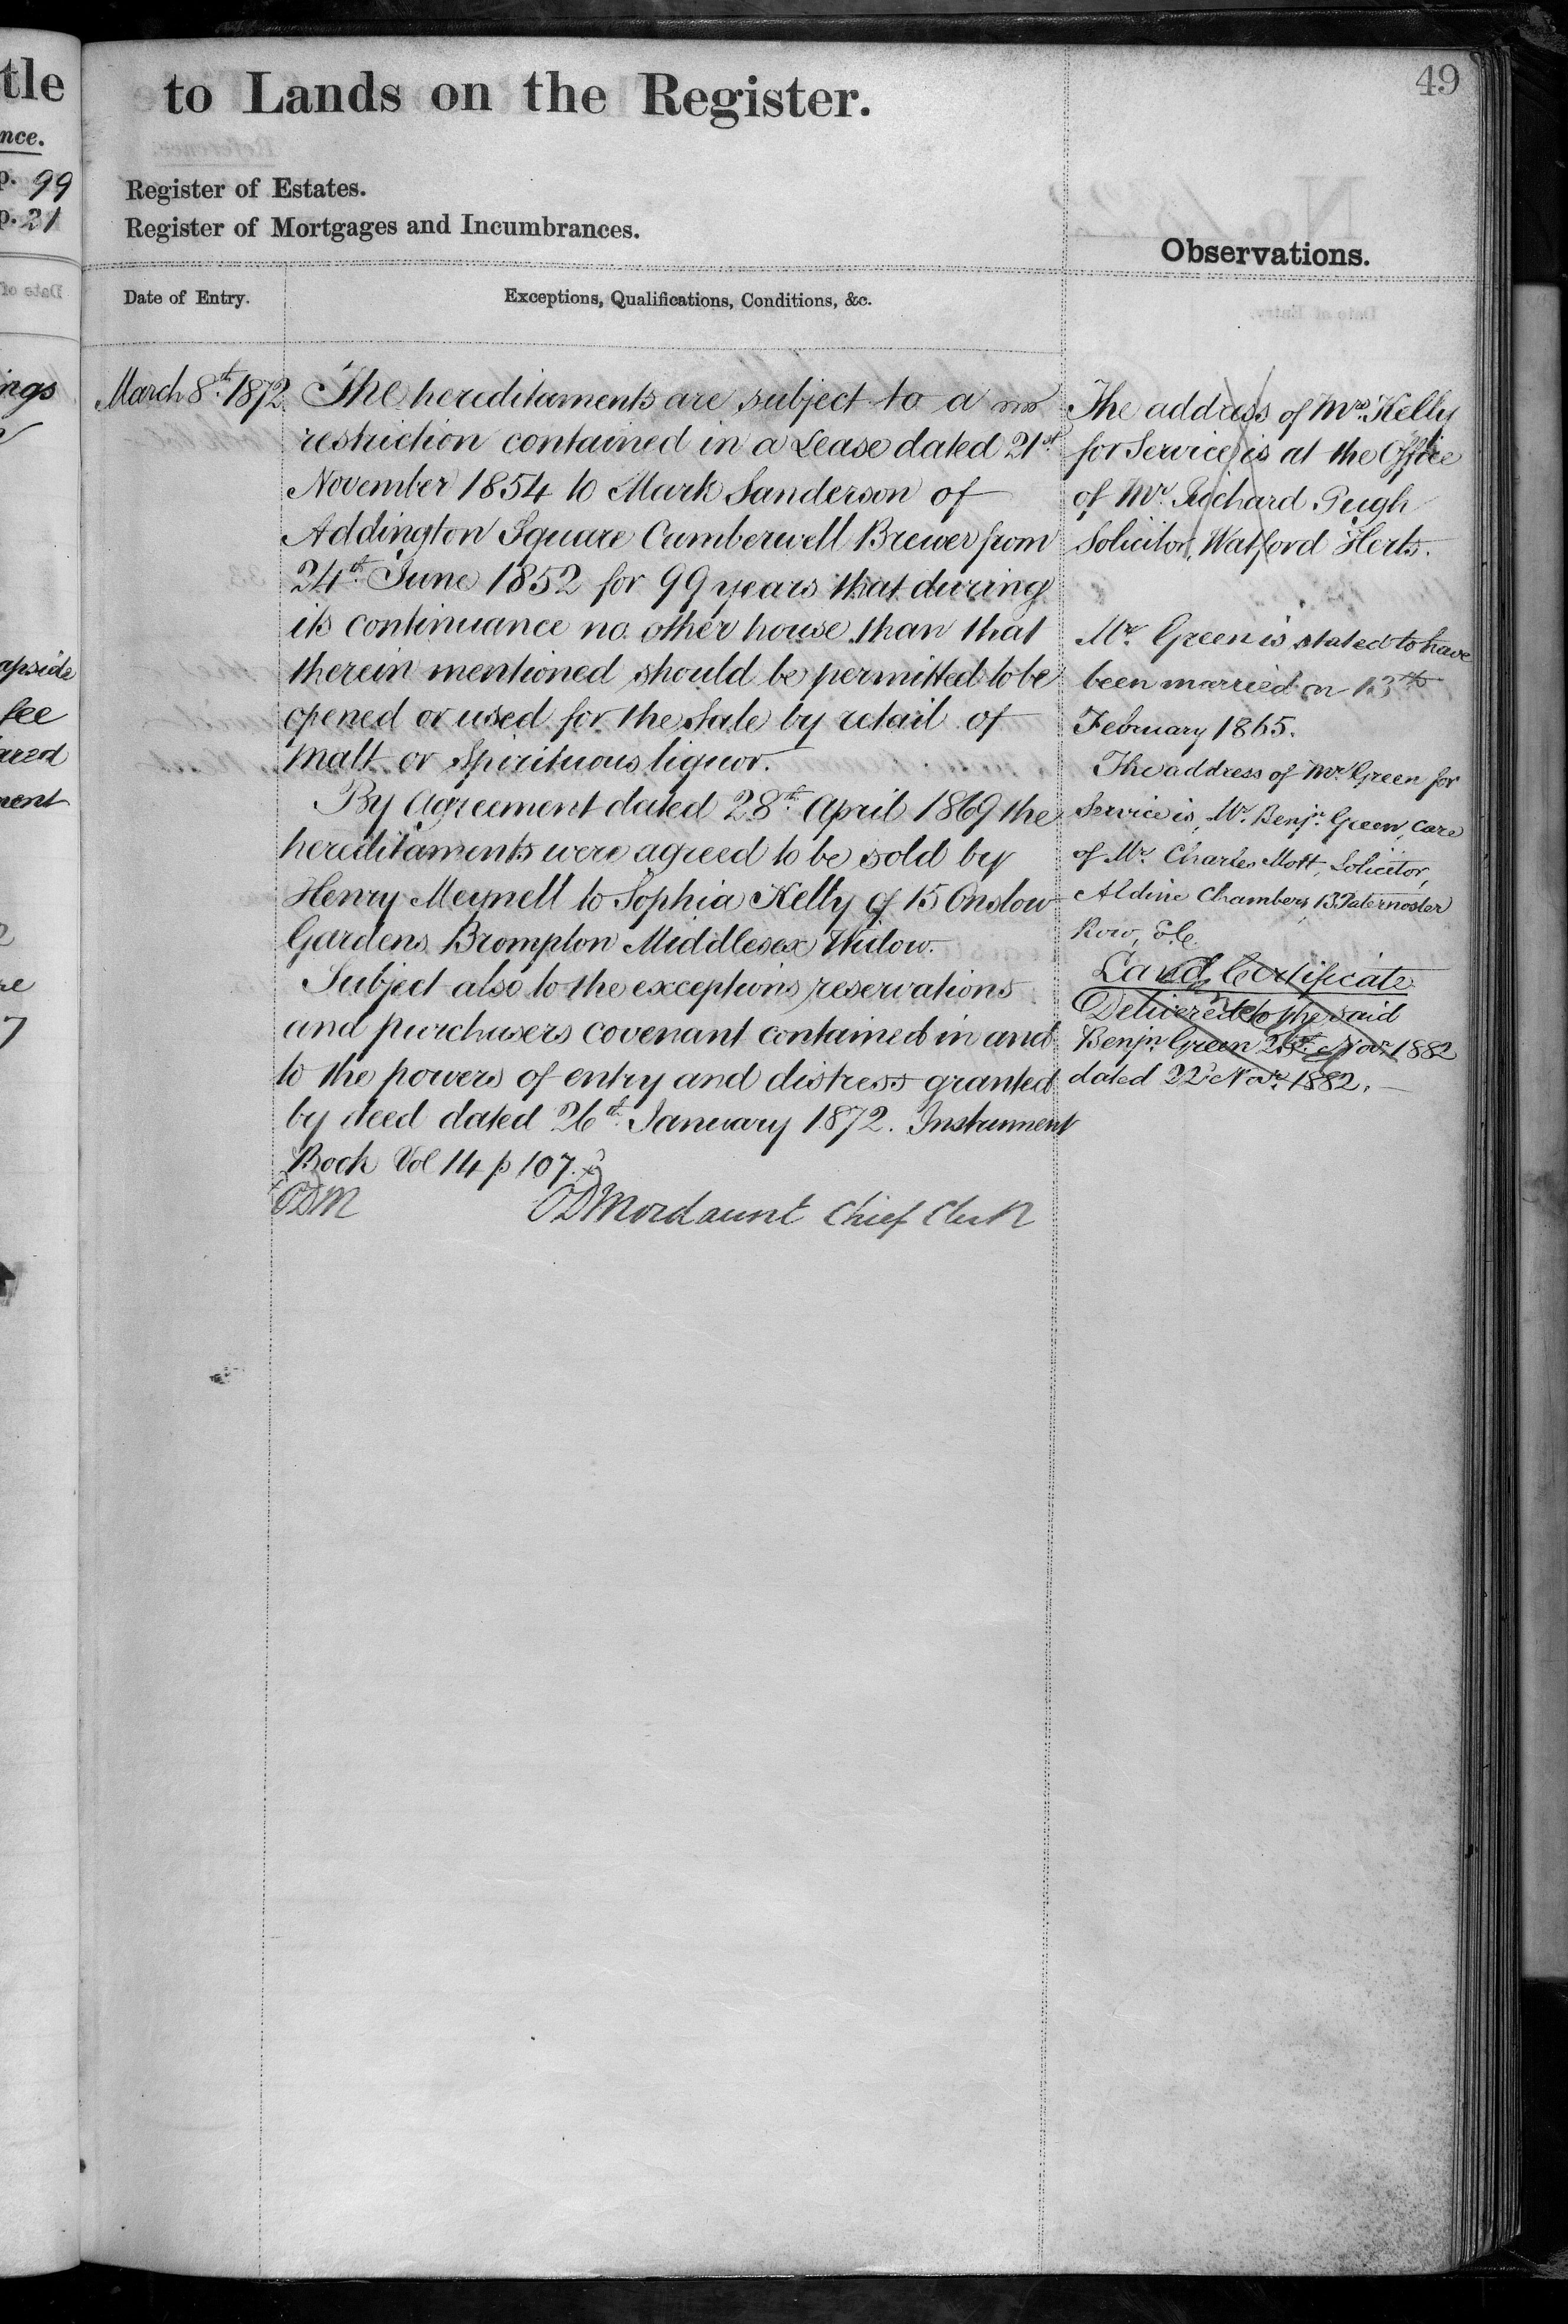 tle
nce.
p. 99
p. 31
ings
apside
fee
ared
ment
7
49
to Lands on the Register.
Register of Estates.
Register of Mortgages and Incumbrances.
Observations.
Date of Entry.
Exceptions, Qualifications, Conditions, &c.
March 8th. 1872
The hereditaments are subject to a
restriction contained in a Lease dated 21st
November 1854 to Mark Sanderson of
Addington Square Camberwell Brewer from
24th June 1852 for 99 years that during
its continuance no other house than that
therein mentioned should be permitted to be
opened or used for the Sale by retail of
Malt or Spirituous liquor.
By Agreement dated 28th April 1869 the
hereditaments were agreed to be sold by
Henry Meynell to Sophia Kelly of 15 Onslow
Gardens Brompton Middlesex Widow.
Subject also to the exceptions reservations
and purchasers covenant contained in and
to the powers of entry and distress granted
by deed dated 26th January 1872. Instrument
Book Vol 14 p 107.
ODM
ODMordaunt Chief Clerk
The address of Mrs. Kelly
for Service is at the Office
of Mr. Richard Pugh
Solicitor, Watford Herts.
Mr. Green is stated to have
been married on 13th
February 1865.
The address of Mr. Green for
Service is, Mr. Benjn. Green, care
of Mr. Charles Mott, Solicitor,
Aldine Chambers, 13 Paternoster
Row, E.C.
Land Certificate
Delivered to the said
Benjn. Green Novr. 1882
dated 22 Novr. 1882.